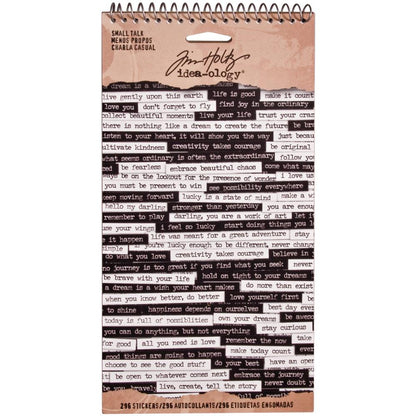 SMALL TALK
MENUS PROPOS
CHARLA CASUAL
Tim Holtz
idea-ology
dream is a wish
live gently upon this earth life is good make it count
love you don't forget to fly find joy in the ordinary
collect beautiful moments live your life trust your
there is nothing like a dream to create the future be
listen to your heart, it will show you the way just because
cultivate kindness creativity takes courage be original
what seems ordinary is often the extraordinary follow
be fearless embrace beautiful chaos come what may
be on the lookout for the presence of wonder I love
you must be present to win see possibility everywhere
keep moving forward lucky is a state of mind make a
hello my darling stronger than yesterday you are enough
remember to play darling, you are a work of art let it
use your wings I feel so lucky start doing things you
it happen life was meant for a great adventure stay
simple if you're lucky enough to be different, never change
do what you love creativity takes courage believe in
no journey is too great if you find what you seek never
be brave with your life hold on tight to your dreams
a dream is a wish your heart makes do more than exist
when you know better, do better love yourself first
to shine happiness depends on ourselves best day ever
today is full of possibilities own your dreams be awesome
you can do anything, but not everything stay curious
for good all you need is love remember the now take
good things are going to happen make today count ever
to see the good choose happy do your best have
okay to not know what comes next embrace the journey
you bravely live, create, tell the story
296 STICKERS/296 AUTOCOLLANTS/296 ETIQUETAS ENGOMADAS